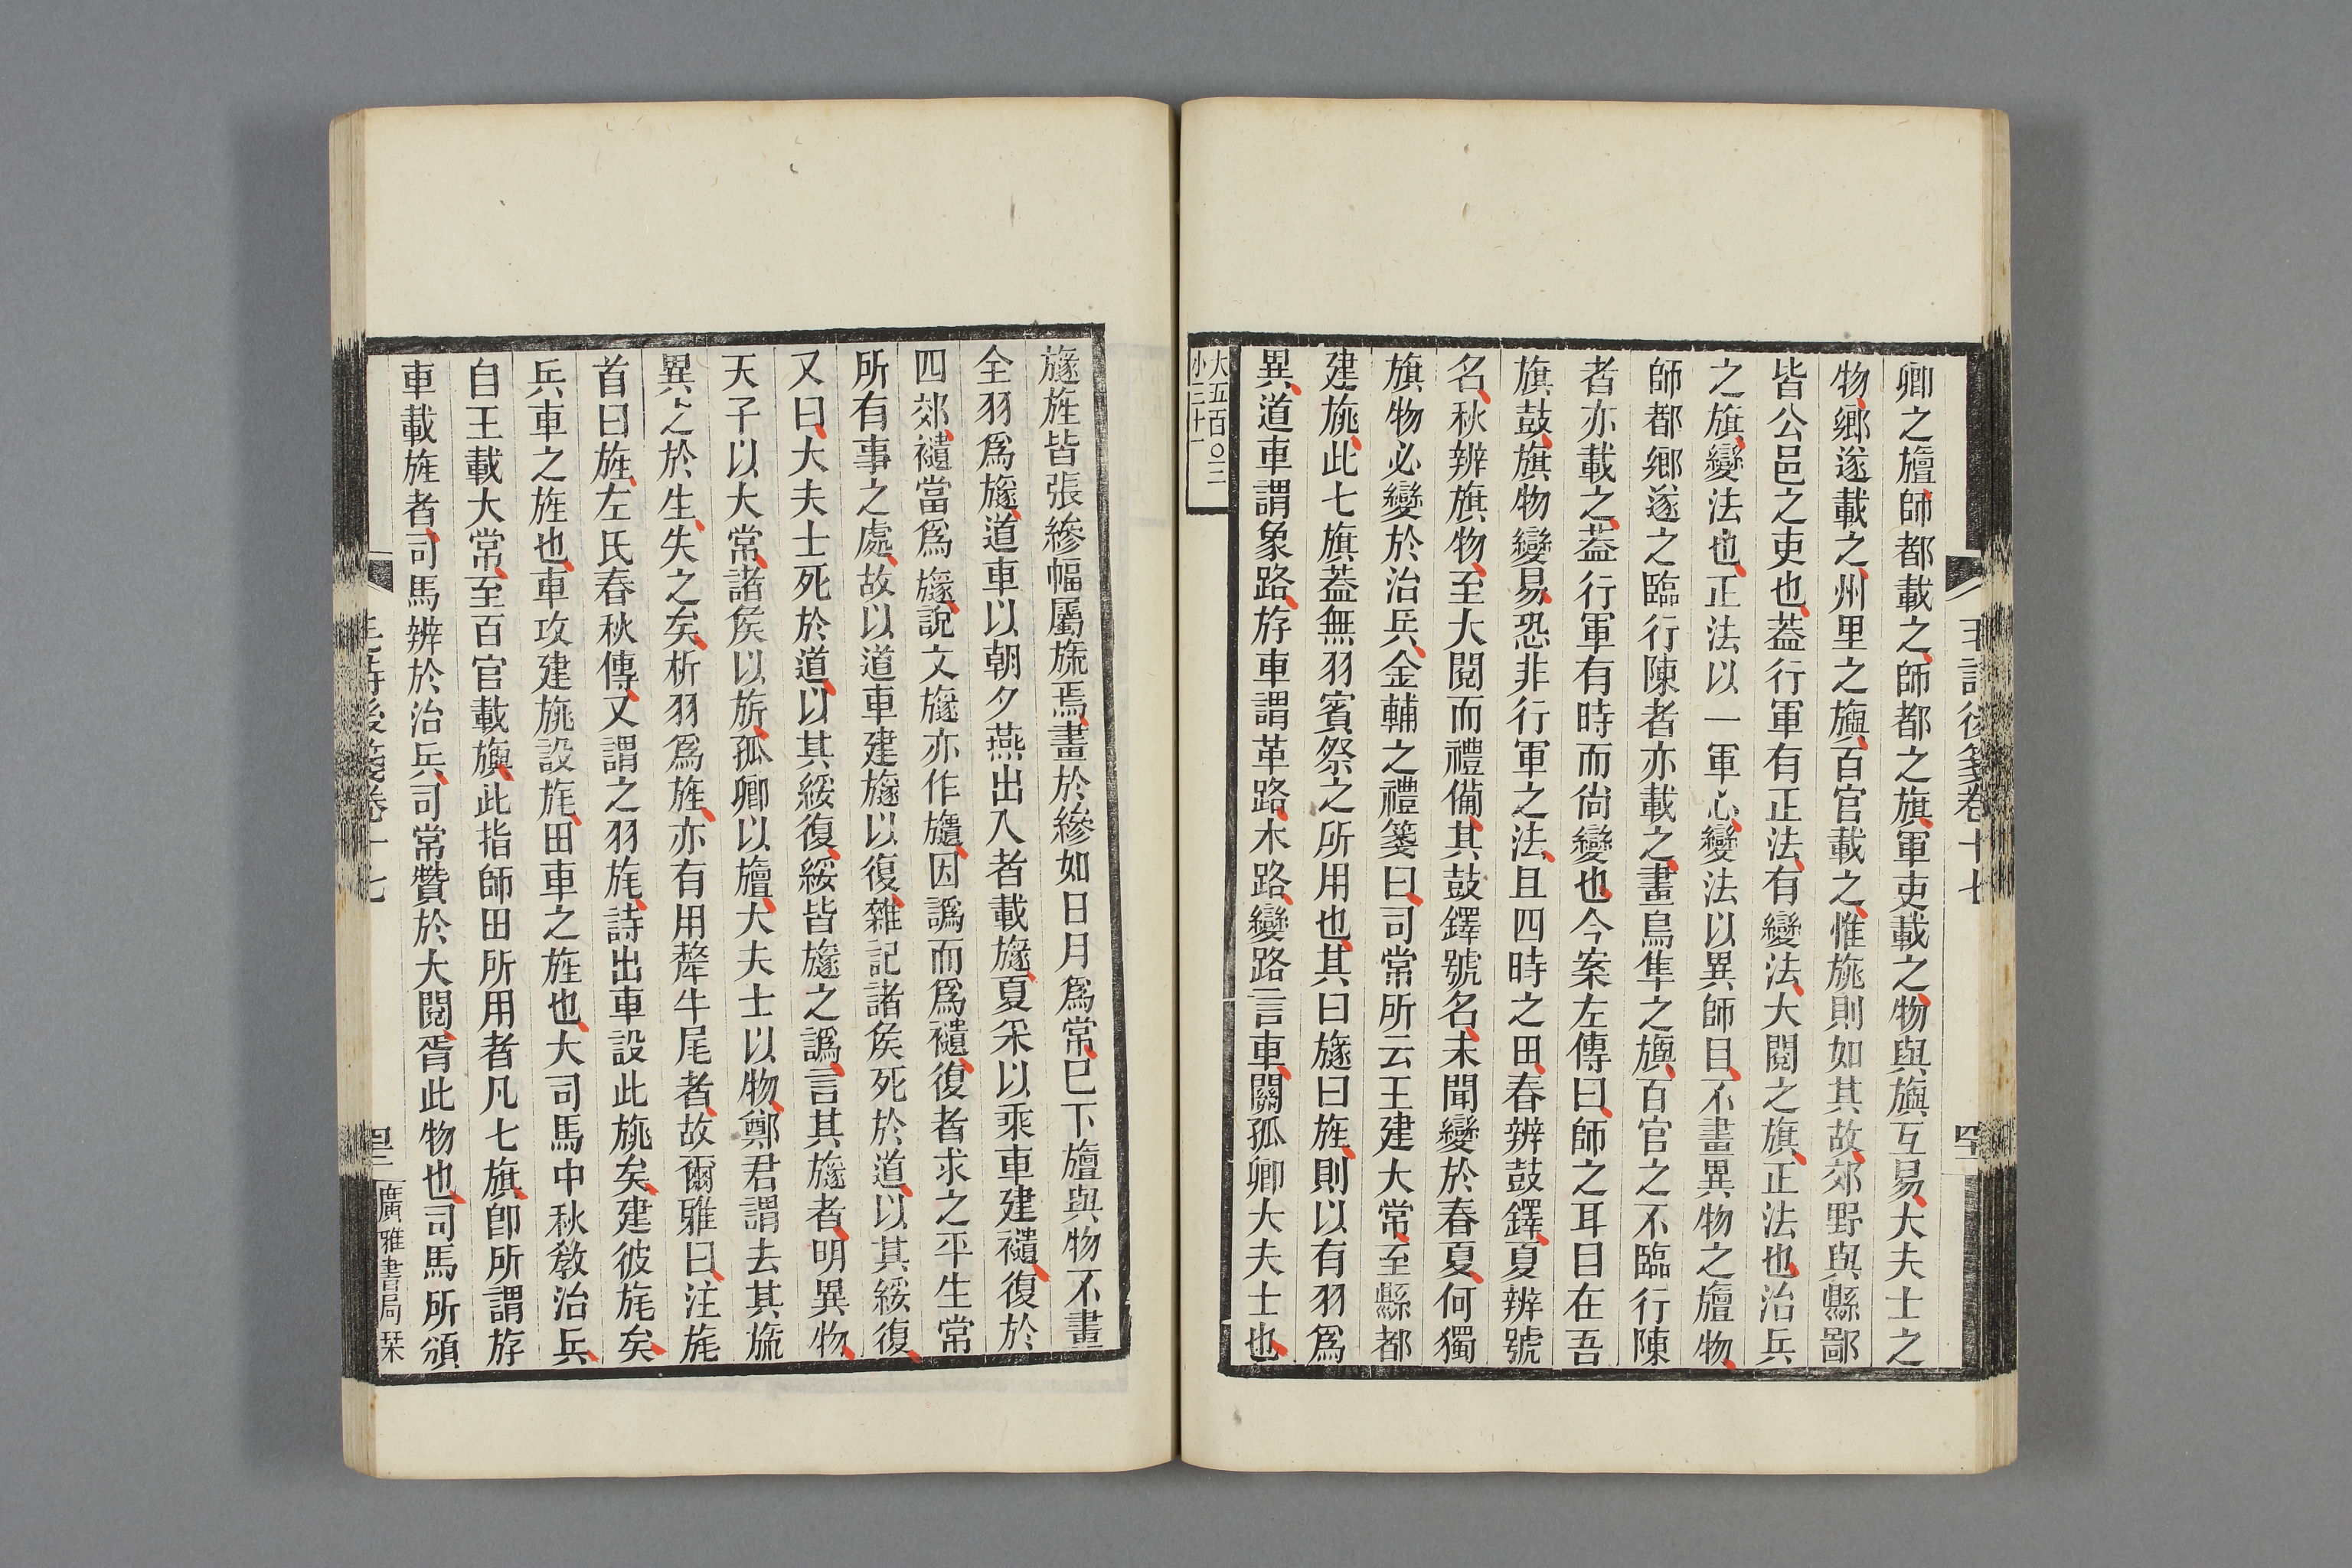 卿之旜師都載之師都之旗軍吏載之物與旟互易大夫士之
物鄉遂載之州里之旟百官載之惟旐則如其故郊野與縣鄙
皆公邑之吏也葢行軍有正法有變法大閱之旗正法也治兵
之旗變法也正法以一軍心變法以異師目不畫異物之旜物
師都鄉遂之臨行陳者亦載之畫鳥隼之旟百官之不臨行陳
者亦載之葢行軍有時而尙變也今案左傳曰師之耳目在吾
旗鼓旗物變易恐非行軍之法且四時之田春辨鼓鐸夏辨號
名秋辨旗物至大閱而禮備其鼓鐸號名未聞變於春夏何獨
旗物必變於治兵金輔之禮箋曰司常所云王建大常至縣都
建旐此七旗葢無羽賓祭之所用也其曰旞曰旌則以有羽爲
異道車謂象路斿車謂革路木路變路言車關孤卿大夫士也
大五百〇三
小二十一
毛詩後箋卷十七
旞旌皆張縿幅屬旒焉畫於縿如日月爲常巳下旜與物不畫
全羽爲旞道車以朝夕燕出入者載旞夏采以乘車建䙡復於
四郊䙡當爲旞說文旞亦作䙡因譌而爲䙡復者求之平生常
所有事之處故以道車建旞以復雜記諸侯死於道以其綏復
又曰大夫士死於道以其綏復綏皆旞之譌言其旞者明異物
天子以大常諸侯以旂孤卿以旜大夫士以物鄭君謂去其旒
異之於生失之矣析羽爲旌亦有用犛牛尾者故爾雅曰注旄
首曰旌左氏春秋傳又謂之羽旄詩出車設此旐矣建彼旄矣
兵車之旌也車攻建旐設旄田車之旌也大司馬中秋敎治兵
自王載大常至百官載旟此指師田所用者凡七旗卽所謂斿
車載旌者司馬辨於治兵司常贊於大閱胥此物也司馬所頒
毛詩後箋卷十七
廣雅書局栞